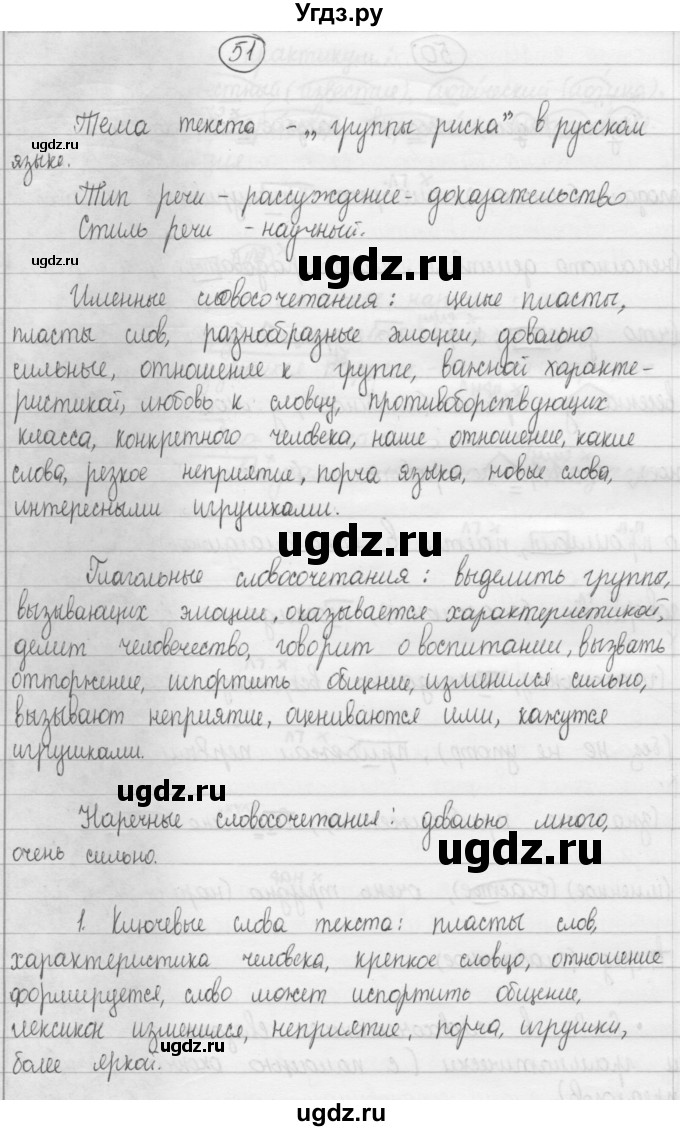 Угдз.ру
51
Тема текста - „группы риска" в русском
языке.
Тип речи - рассуждение - доказательство
Стиль речи - научный.
ugdz.ru
ugdz.ru
Именные словосочетания: целые пласты,
пласты слов, разнообразные эмоции, довольно
сильные, отношение к группе, важной характе-
ристикой, любовь к словцу, противоборствующих
класса, конкретного человека, наше отношение, какие
слова, резкое неприятие, порча языка, новые слова,
интересными игрушками.
ugdz.ru
Глагольные словосочетания: выделить группы,
вызывающих эмоции, оказывается характеристикой,
делит человечество, говорит о воспитании, вызвать
отторжение, испортить общение, изменился сильно,
ugdz.ru
вызывают неприятие, оцениваются ими, кажутся
игрушками.
ugdz.ru
Наречные словосочетания: довольно много,
очень сильно.
ugdz.ru
1. Ключевые слова текста: пласты слов,
характеристика человека, крепкое словцо, отношение
формируется, слово может испортить общение,
лексикон изменился, неприятие, порча, игрушки,
ugdz.ru
более яркой.
ugdz.ru